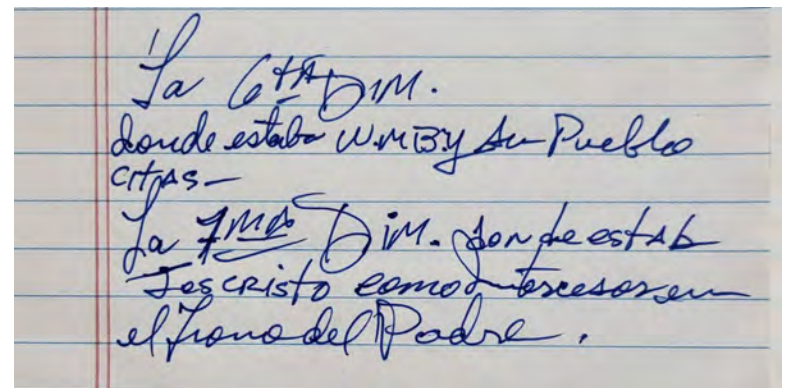 La 6ta DIM.
donde estaba W.M.B. y su Pueblo
CITAS-
La 7ma DiM. donde estab
Jescristo como intercesor en
el trono del Padre.